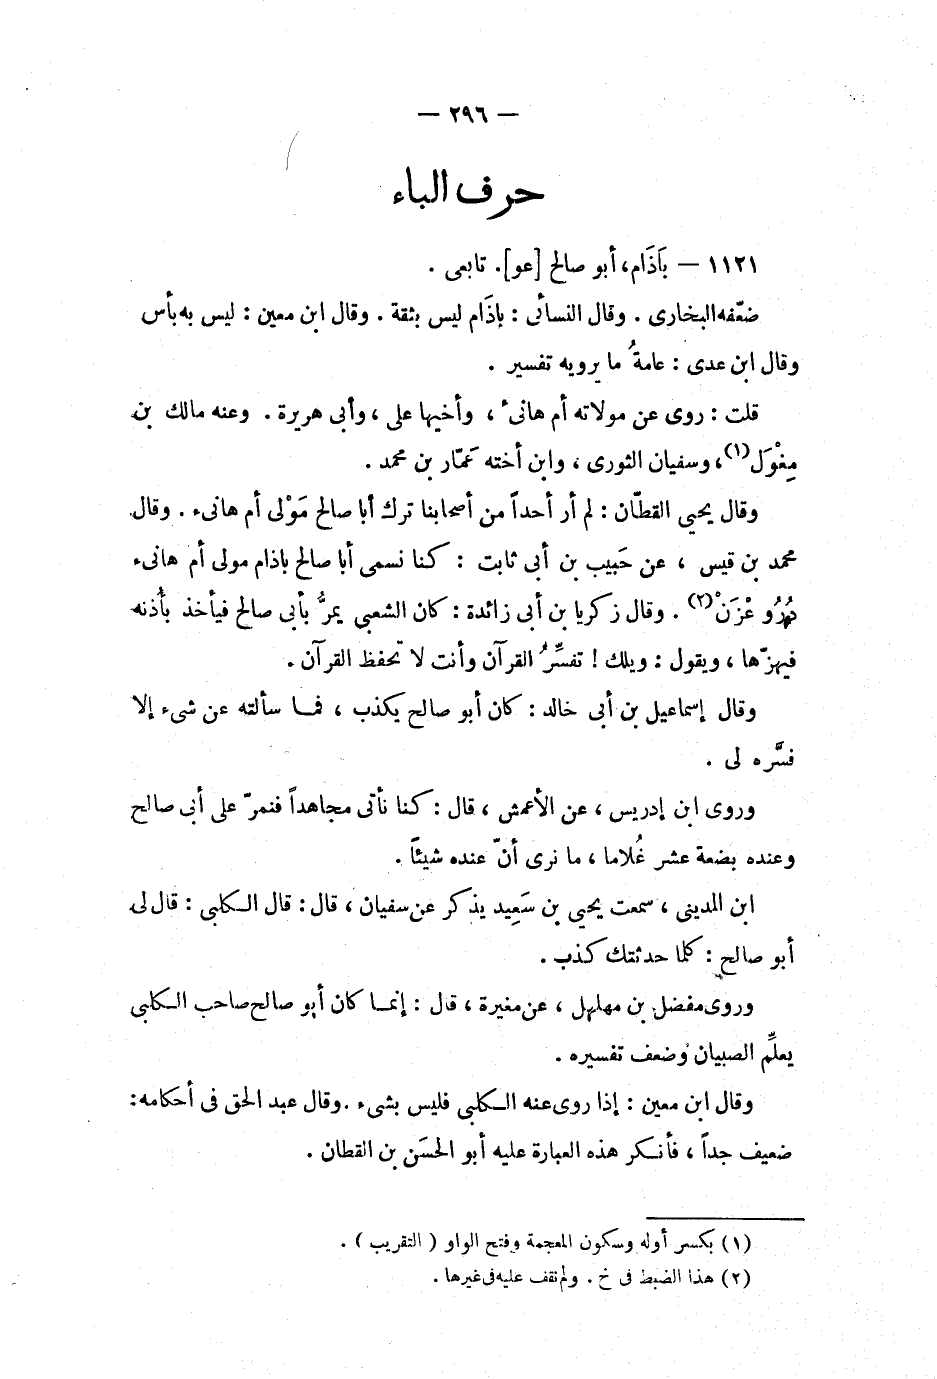 — ٢٩٦ —
حرف الباء
١١٢١ — بَاذَام، أبو صالح [عو]. تابعى .
ضعّفه البخارى . وقال النسائى : باذَام ليس بثقة . وقال ابن معين : ليس به بأس
وقال ابن عدى : عامةُ ما يرويه تفسير .
قلت : روى عن مولاته أم هانىء ، وأخيها على ، وأبى هريرة . وعنه مالك بن
مِغْوَل(١)، وسفيان الثورى ، وابن أخته عَمّار بن محمد .
وقال يحيى القطّان : لم أر أحداً من أصحابنا ترك أبا صالح مَوْلى أم هانىء . وقال
محمد بن قيس ، عن حَبيب بن أبى ثابت : كنا نسمى أبا صالح باذام مولى أم هانىء
دُرُو غْزَنْ(٢) . وقال زكريا بن أبى زائدة : كان الشعبي يمرُّ بأبى صالح فيأخذ بأُذنه
فيهزّها ، ويقول : ويلك ! تفسِّرُ القرآن وأنت لا تحفظ القرآن .
وقال إسماعيل بن أبى خالد : كان أبو صالح يكذب ، فما سألته عن شىء إلا
فسَّره لى .
وروى ابن إدريس ، عن الأعمش ، قال : كنا نأتى مجاهداً فنمرّ على أبى صالح
وعنده بضعة عشر غُلاما ، ما نرى أنّ عنده شيئاً .
ابن المدينى ، سمعت يحيى بن سَعِيد يذكر عن سفيان ، قال : قال الكلبى : قال لى
أبو صالح : كلما حدثتك كذب .
وروى مفضل بن مهلهل ، عن مغيرة ، قال : إنما كان أبو صالح صاحب الكلبى
يعلِّم الصبيان وضعف تفسيره .
وقال ابن معين : إذا روى عنه الكلبي فليس بشىء . وقال عبد الحق فى أحكامه :
ضعيف جداً ، فأنكر هذه العبارة عليه أبو الحسَن بن القطان .
(١) بكسر أوله وسكون المعجمة وفتح الواو ( التقريب ) .
(٢) هذا الضبط فى خ . ولم نقف عليه فى غيرها .